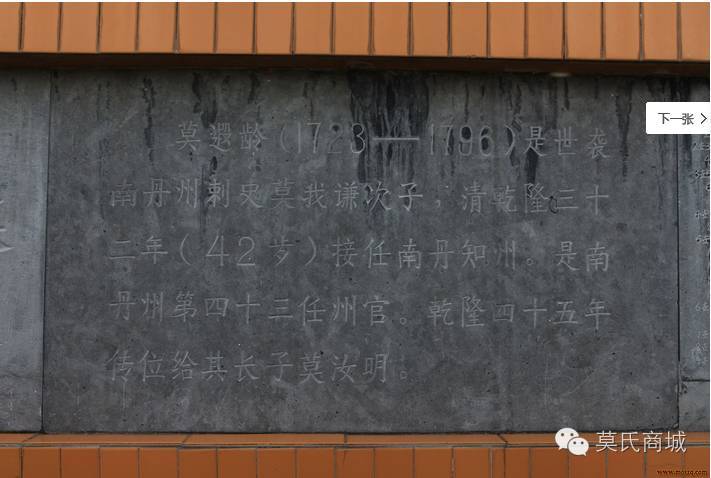 莫遐龄(1723—1796)是世袭
南丹州刺史莫我谦次子,清乾隆三十
二年(42步)接任南丹知州。是南
丹州第四十三任州官。乾隆四十五年
传位给其长子莫汝明。
下一张
莫氏商城